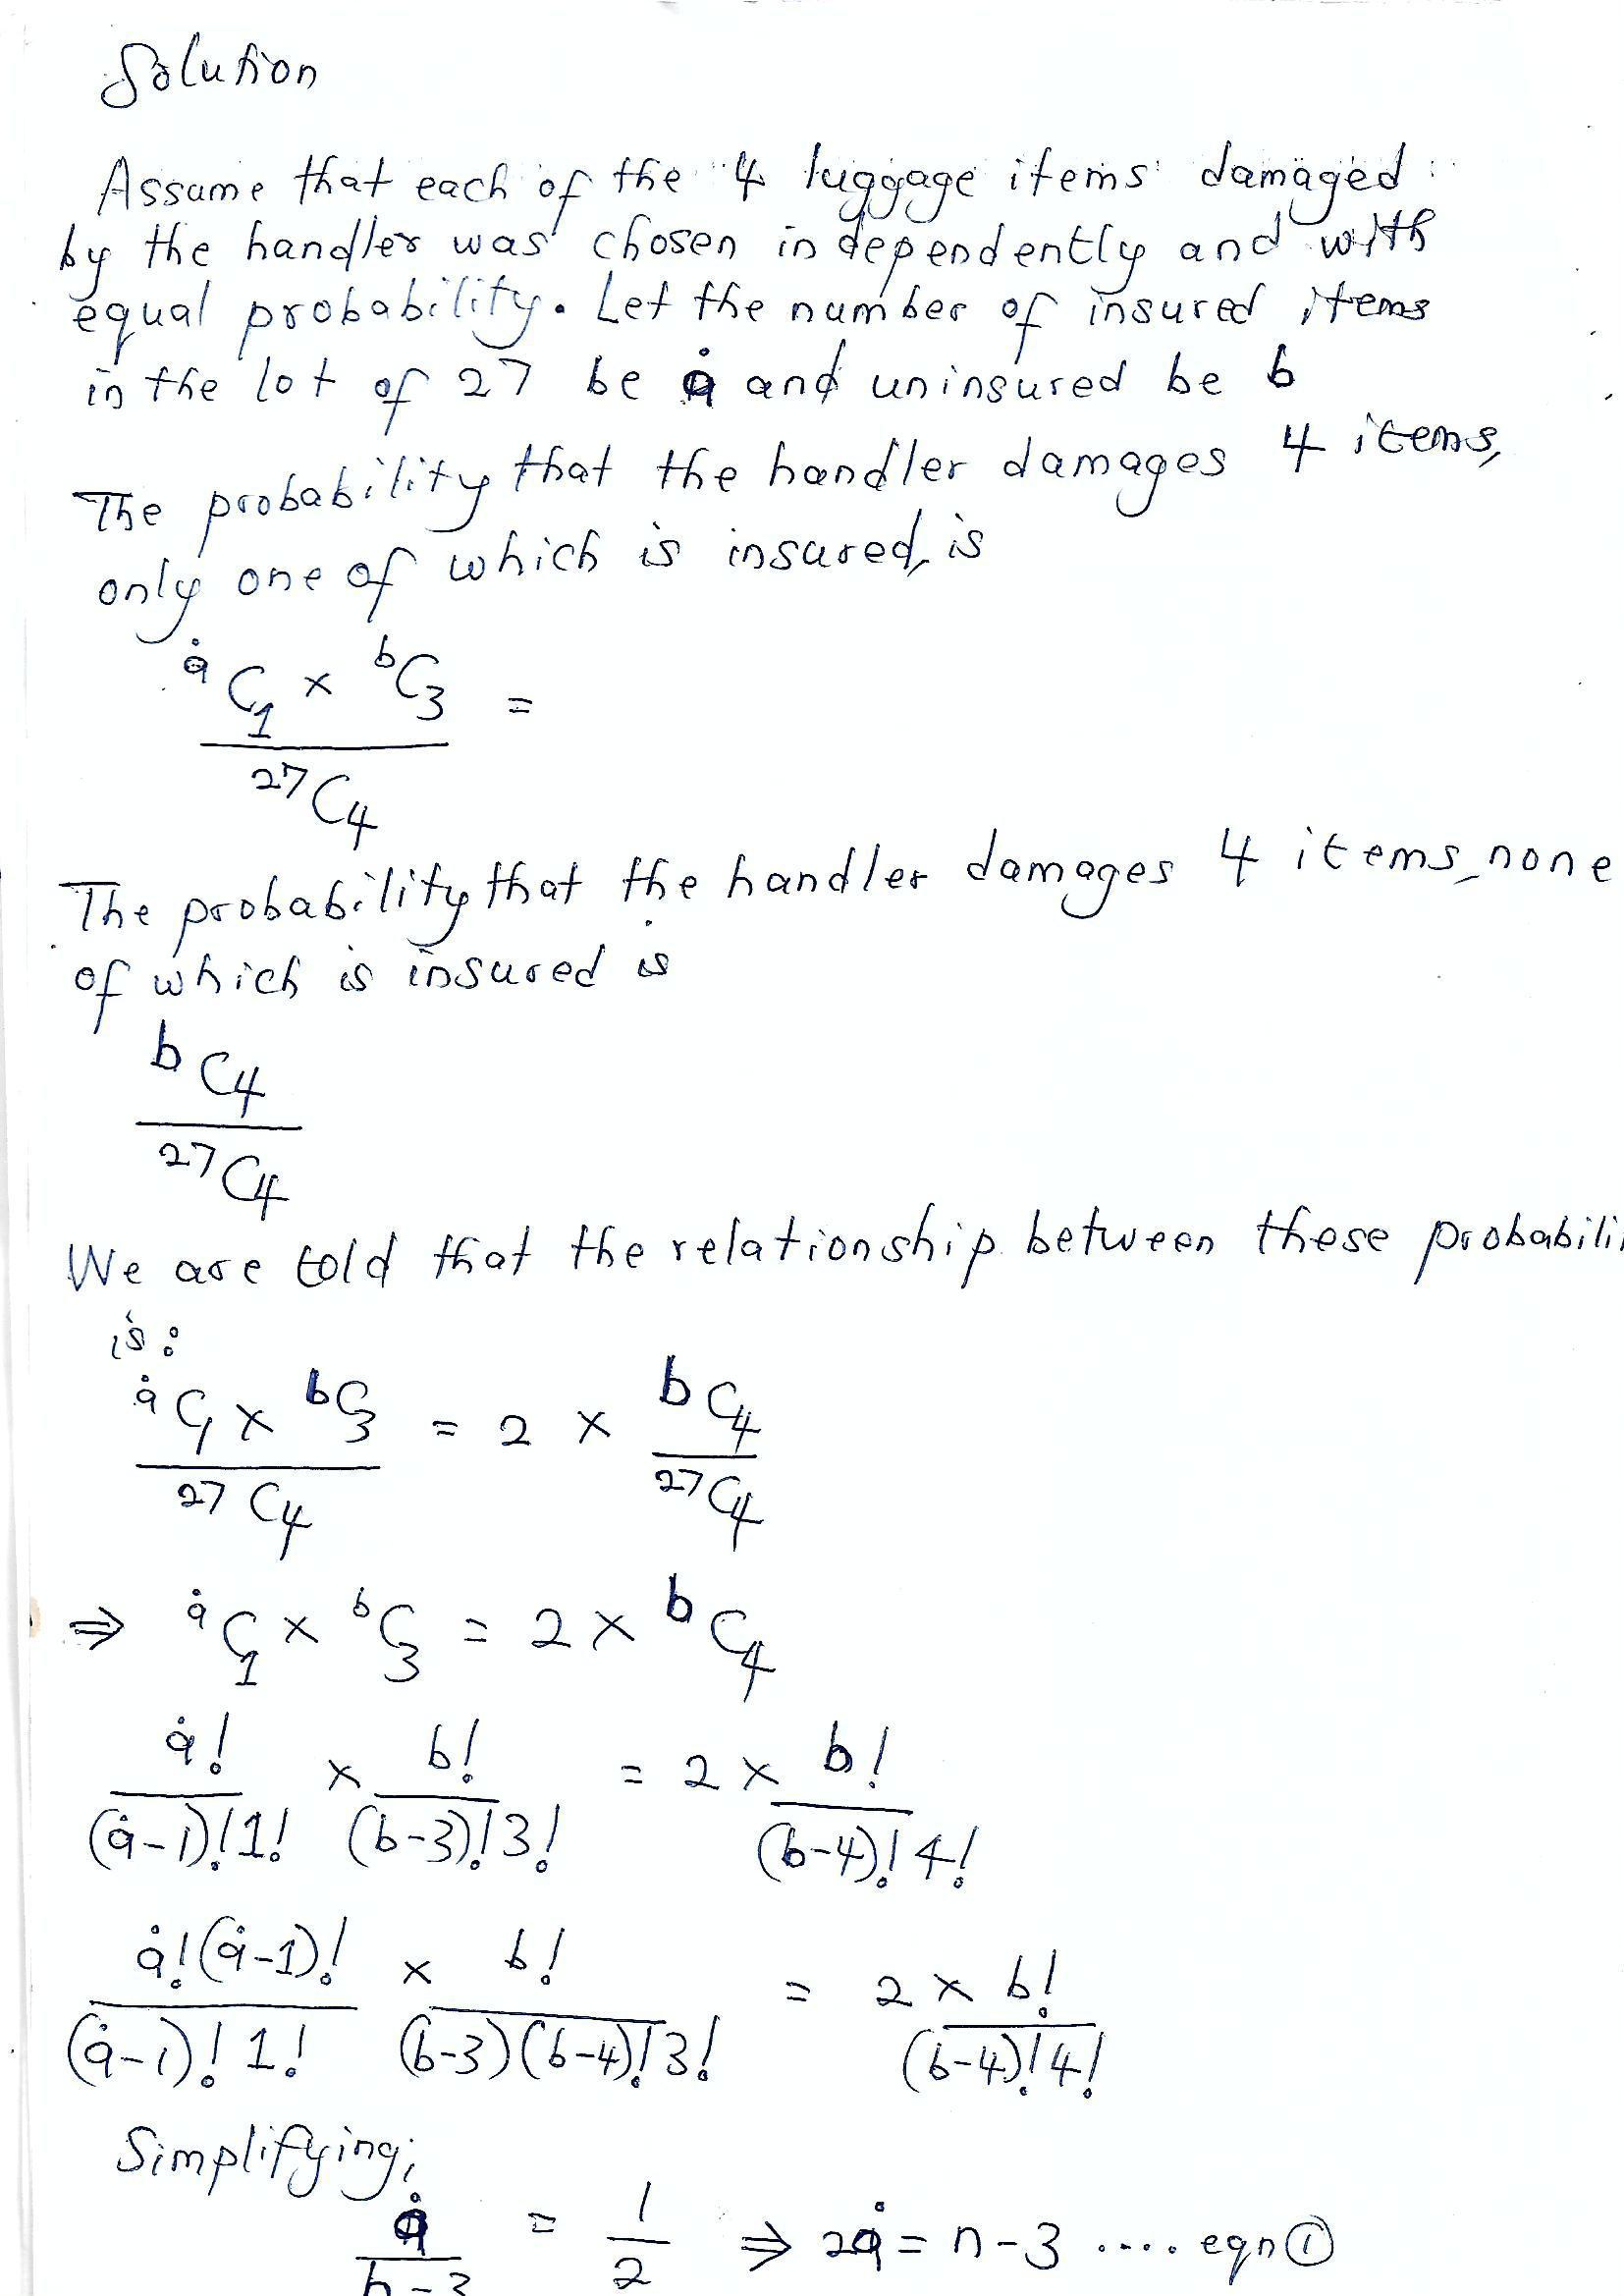 Solution
Assume that each of the 4 luggage items damaged
by the handler was chosen independently and with
equal probability. Let the number of insured items
in the lot of 27 be ȧ and uninsured be b
The probability that the handler damages 4 items,
only one of which is insured, is
ȧC₁ × ᵇC₃ =
²⁷C₄
The probability that the handler damages 4 items, none
of which is insured is
ᵇC₄
²⁷C₄
We are told that the relationship between these probabili
is:
ȧC₁ × ᵇC₃ = 2 × ᵇC₄
²⁷C₄ ²⁷C₄
⇒ ȧC₁ × ᵇC₃ = 2 × ᵇC₄
ȧ! × b! = 2 × b!
(ȧ-1)!1! (b-3)!3! (b-4)!4!
ȧ!(ȧ-1)! × b! = 2 × b!
(ȧ-1)!1! (b-3)(b-4)!3! (b-4)!4!
Simplifying;
ȧ = 1 ⇒ 2ȧ = n-3 .... eqn ①
b-3 2